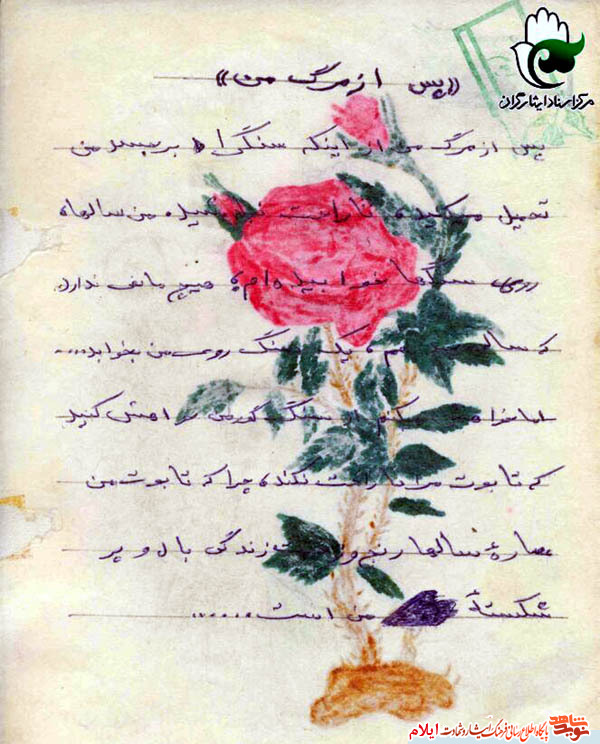 مرکز اسناد ایثارگران
«پس از مرگ من»
پس از مرگ من از اینکه سنگی بر جسد من
تحمیل میکنید ناراحت نشوید من سالها
روی سنگها خوابیده‌ام، هیچ مانعی ندارد
که سالی هم، یک سنگ روی من بخوابد....
اما خواهش میکنم از سنگ گور من خواهش کنید
که تابوت مرا ناراحت نکند، چرا که تابوت من
عصارهٔ سالها رنج و زحمت زندگی بال و پر
شکستهٔ من است......
نوید شاهد پایگاه اطلاع رسانی فرهنگ ایثار و شهادت ایلام